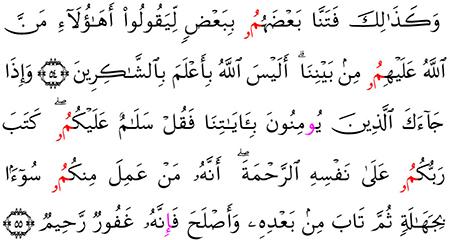 وَكَذَٰلِكَ فَتَنَّا بَعْضَهُمُۥ بِبَعْضٍ لِّيَقُولُوٓا۟ أَهَٰٓؤُلَآءِ مَنَّ
ٱللَّهُ عَلَيْهِمُۥ مِنۢ بَيْنِنَآ ۗ أَلَيْسَ ٱللَّهُ بِأَعْلَمَ بِٱلشَّٰكِرِينَ ۝٥٤ وَإِذَا
جَآءَكَ ٱلَّذِينَ يُومِنُونَ بِـَٔايَٰتِنَا فَقُلْ سَلَٰمٌ عَلَيْكُمُۥ ۖ كَتَبَ
رَبُّكُمُۥ عَلَىٰ نَفْسِهِ ٱلرَّحْمَةَ ۖ أَنَّهُۥ مَنْ عَمِلَ مِنكُمُۥ سُوٓءًۢا
بِجَهَٰلَةٍ ثُمَّ تَابَ مِنۢ بَعْدِهِۦ وَأَصْلَحَ فَإِنَّهُۥ غَفُورٌ رَّحِيمٌ ۝٥٥